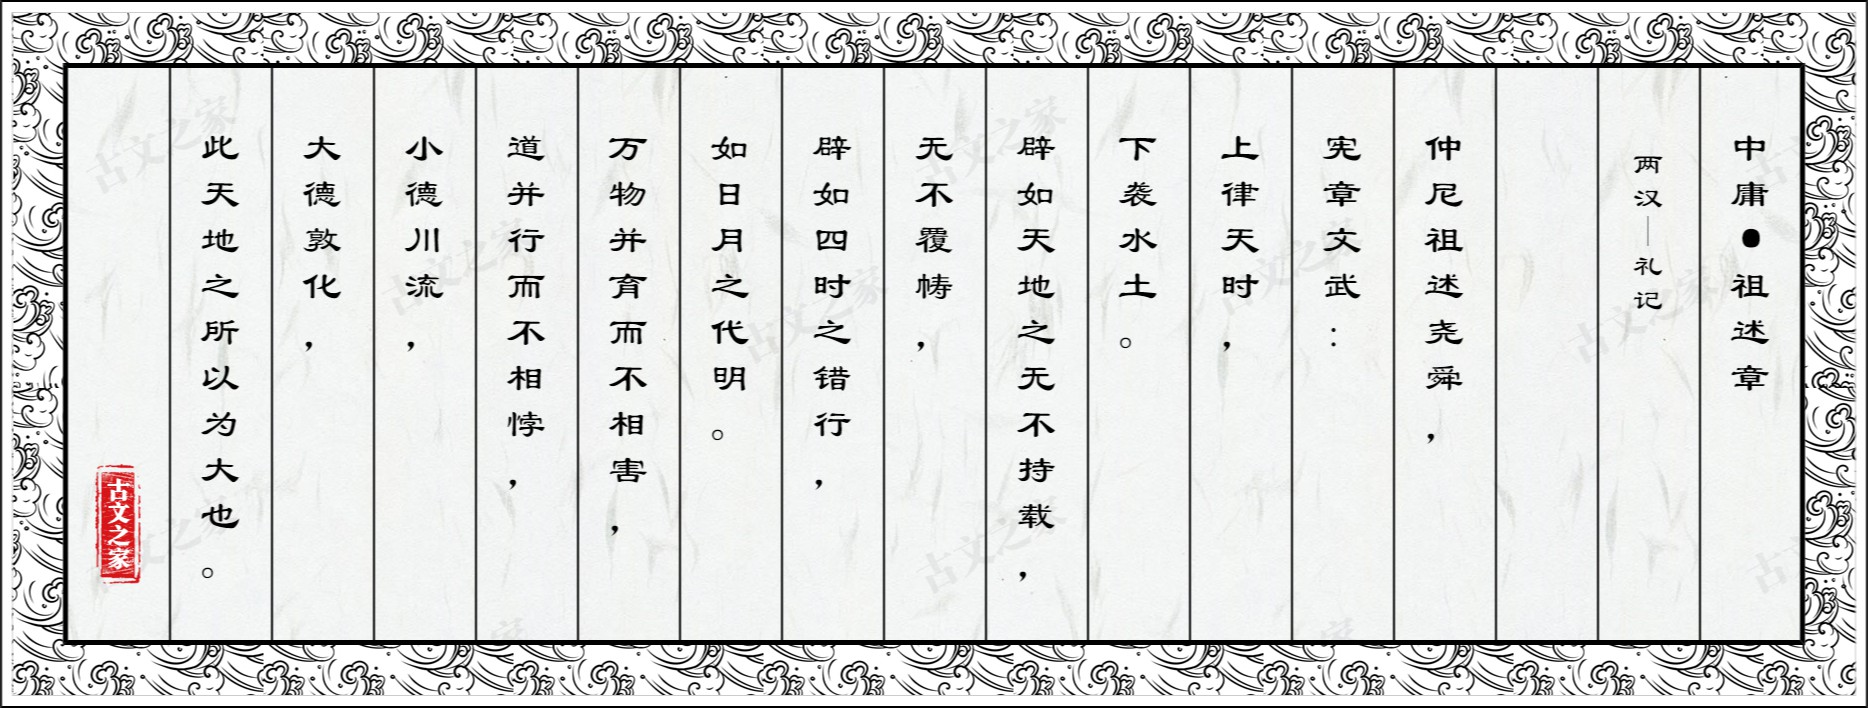 中庸●祖述章
两汉—礼记
仲尼祖述尧舜，
宪章文武：
上律天时，
下袭水土。
辟如天地之无不持载，
无不覆帱，
辟如四时之错行，
如日月之代明。
万物并育而不相害，
道并行而不相悖，
小德川流，
大德敦化，
此天地之所以为大也。
古文之家